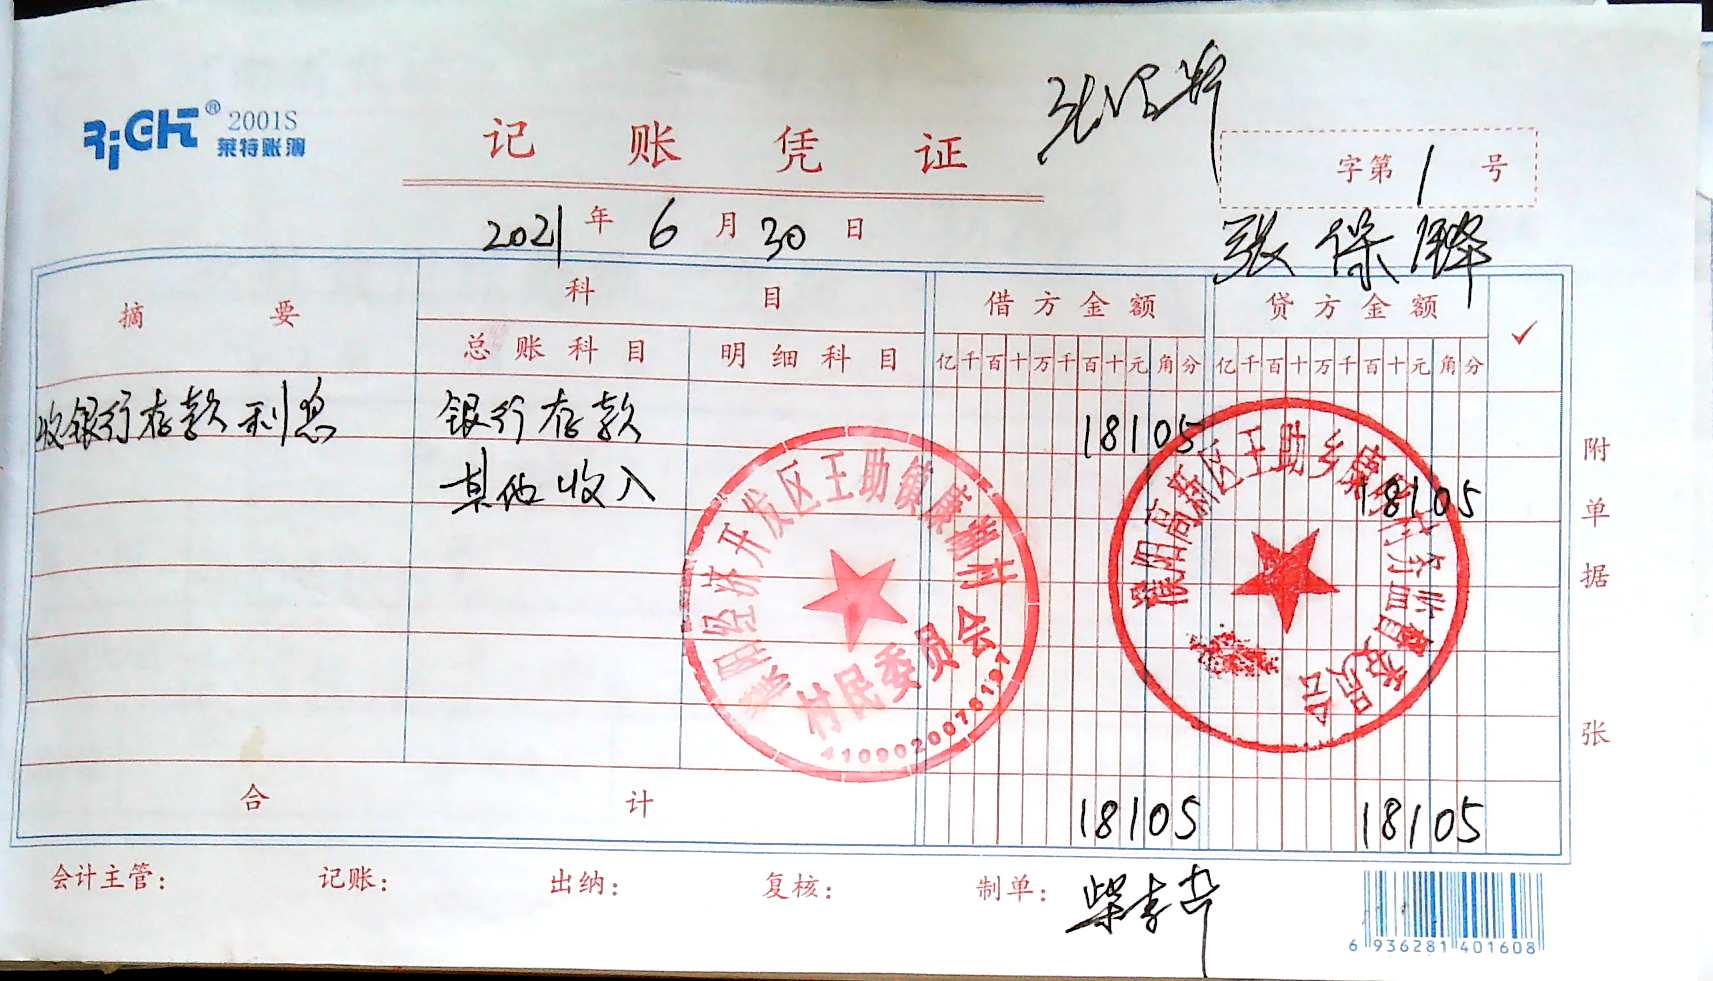 RiGHT® 2001S
莱特账簿
记账凭证
字第1号
2021年6月30日
张保锋
摘要 科目 借方金额 贷方金额 ✓
总账科目 明细科目 亿千百十万千百十元角分 亿千百十万千百十元角分
收银行存款利息 银行存款 18105
其他收入 18105
附单据 张
濮阳经济开发区王助镇
村民委员会
濮阳高新区王助乡
村务监督委员会
合计 18105 18105
会计主管: 记账: 出纳: 复核: 制单:
6 936281 401608